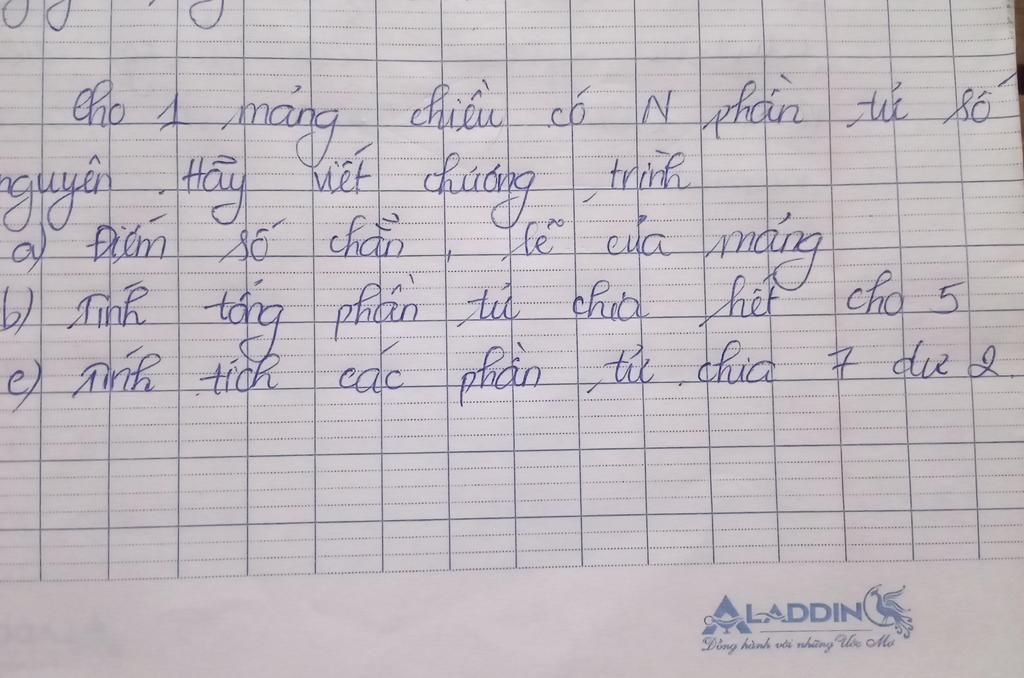 Cho 1 mảng chiều có N phần tử số
nguyên. Hãy viết chương trình
a) Điếm số chẵn, lẽ của mảng
b) Tính tổng phần tử chia hết cho 5
c) Tính tích các phần tử chia 7 dư 2.
ALADDIN
Đồng hành với những Ước Mơ